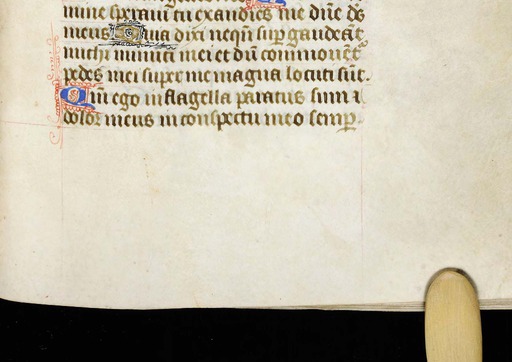 mine speraui tu exaudies me dn̄e ds̄
meus Quia dixi neqn̄ suꝑ gaudeāt
michi inimici mei et dū commouēt᷑
pedes mei super me magna locuti sūt.
Qm̄ ego in flagella paratus sum ⁊
dolor meus in conspectu meo semꝑ